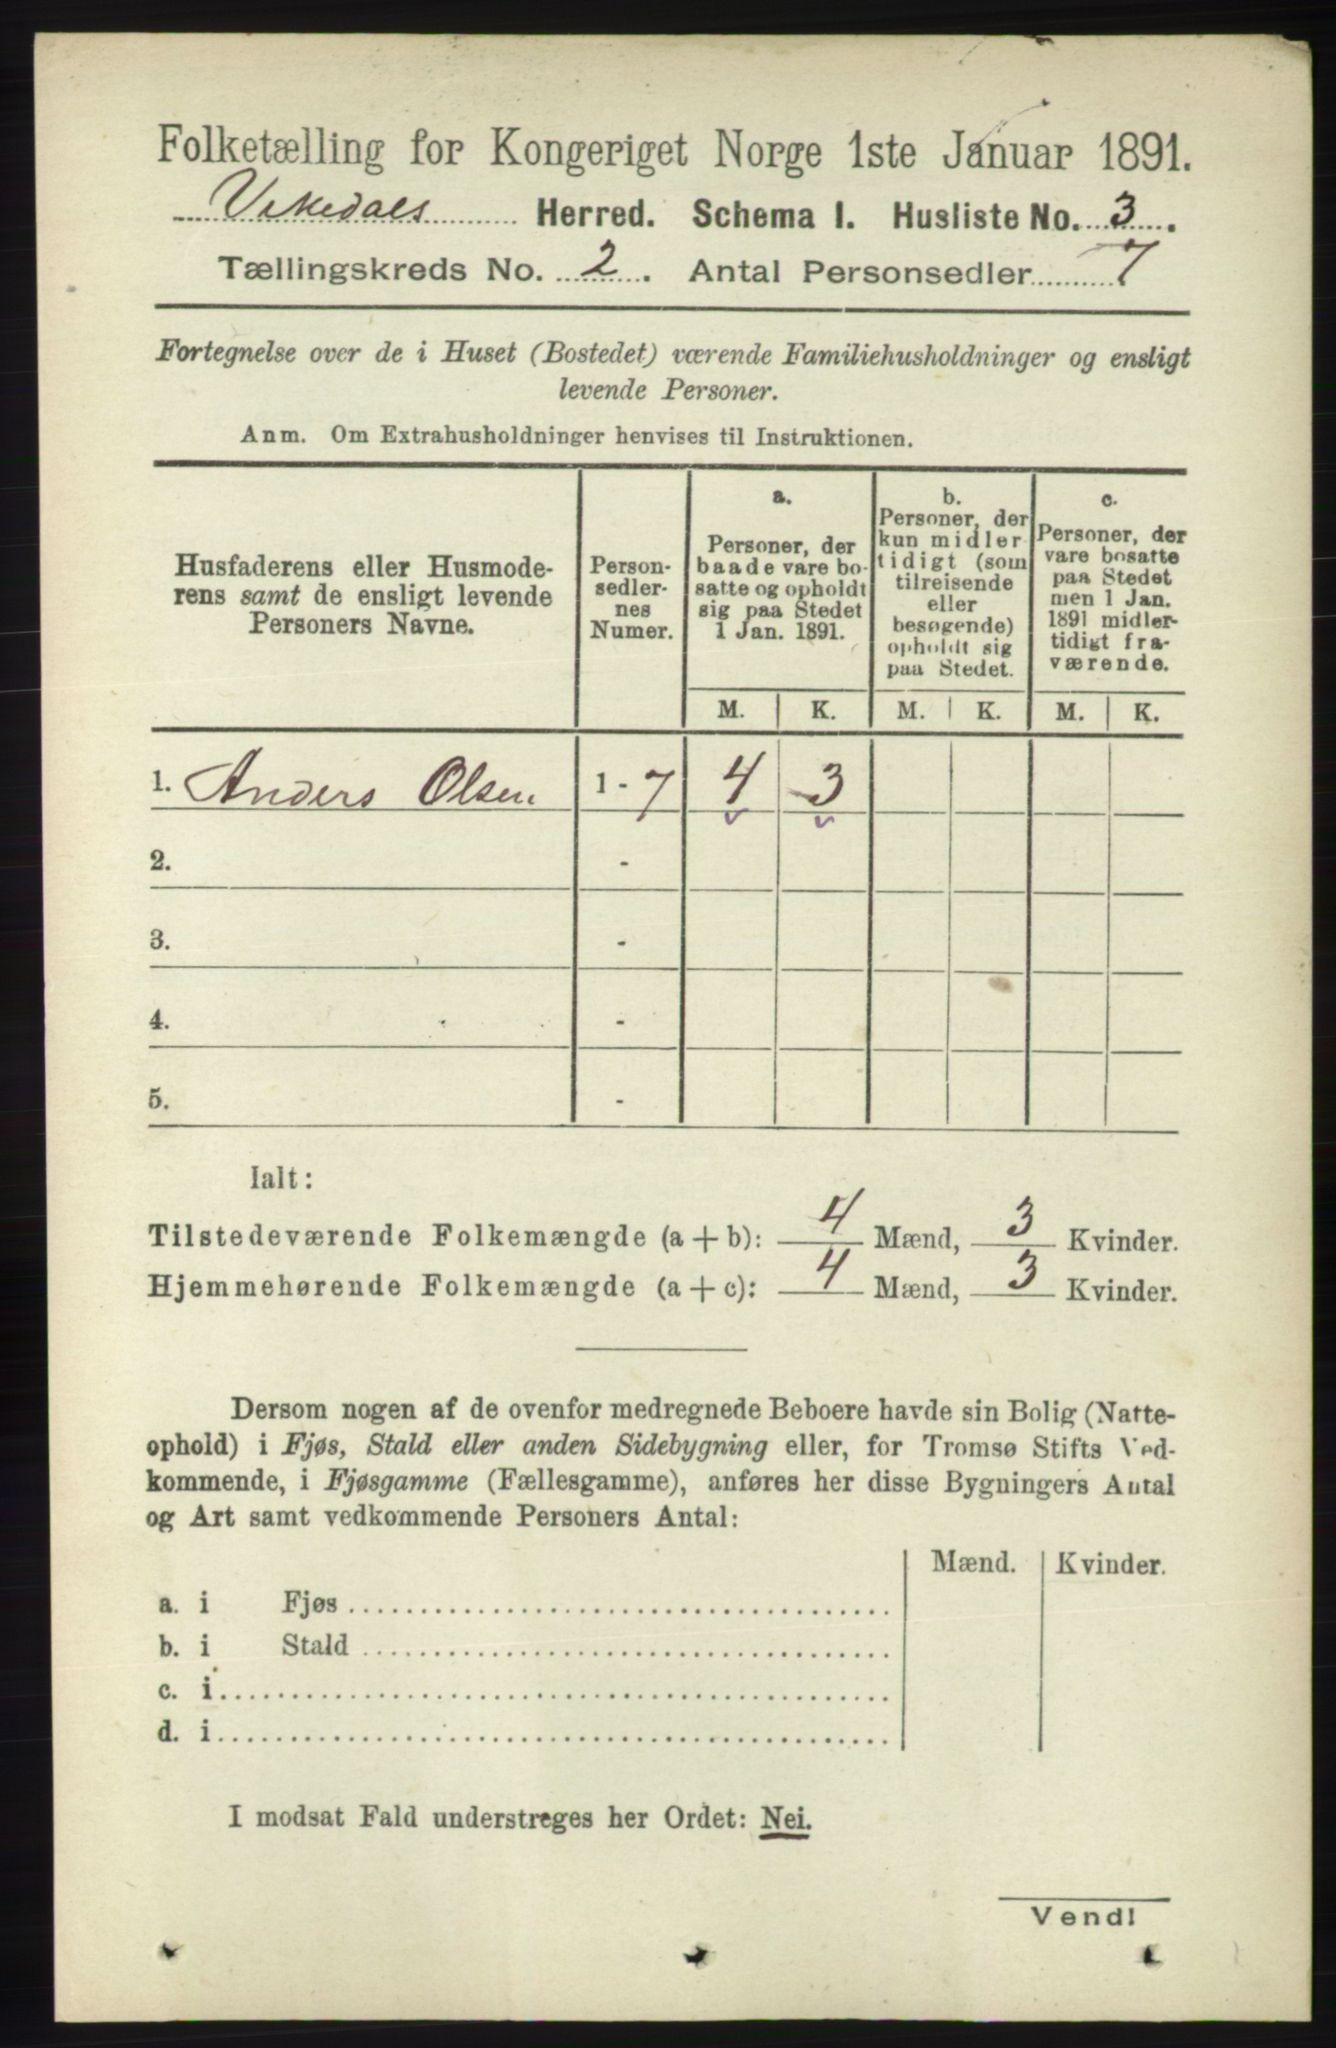 Folketælling for Kongeriget Norge 1ste Januar 1891.
Vikedals Herred. Schema I. Husliste No. 3.
Tællingskreds No. 2. Antal Personsedler 7
Fortegnelse over de i Huset (Bostedet) værende Familiehusholdninger og ensligt
levende Personer.
Anm. Om Extrahusholdninger henvises til Instruktionen.
Husfaderens eller Husmode-
rens samt de ensligt levende
Personers Navne.
Person-
sedler-
nes
Numer.
a.
Personer, der
baade vare bo-
satte og opholdt
sig paa Stedet
1 Jan. 1891.
b.
Personer, der
kun midler-
tidigt (som
tilreisende
eller
besøgende)
opholdt sig
paa Stedet.
c.
Personer, der
vare bosatte
paa Stedet
men 1 Jan.
1891 midler-
tidigt fra-
værende.
M. K. M. K. M. K.
1. Anders Olsen 1 - 7 4 3
2. -
3. -
4. -
5. -
Ialt:
Tilstedeværende Folkemængde (a + b): 4 Mænd, 3 Kvinder.
Hjemmehørende Folkemængde (a + c): 4 Mænd, 3 Kvinder.
Dersom nogen af de ovenfor medregnede Beboere havde sin Bolig (Natte-
ophold) i Fjøs, Stald eller anden Sidebygning eller, for Tromsø Stifts Ved-
kommende, i Fjøsgamme (Fællesgamme), anføres her disse Bygningers Antal
og Art samt vedkommende Personers Antal:
Mænd. Kvinder.
a. i Fjøs
b. i Stald
c. i
d. i
I modsat Fald understreges her Ordet: Nei.
Vend!